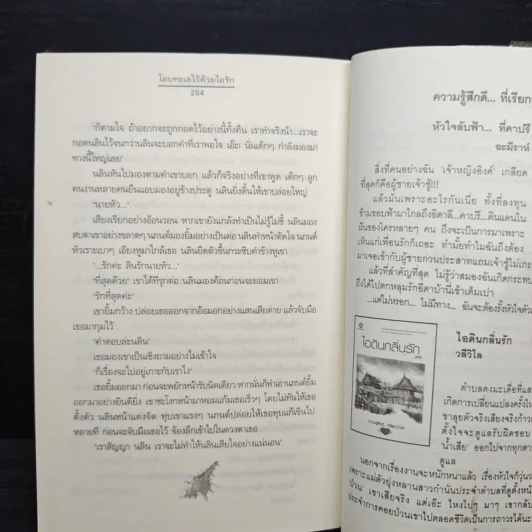 โอบทะเลไว้ด้วยไอรัก
254
"ก็ตามใจ ถ้าอยากจะถูกกอดไว้อย่างนี้ทั้งคืน เราทำจริงน้า...เราจะ
กอดนลินไว้จนกว่านลินจะบอกคำที่เราพอใจ เอ๊ะ! นั่นเด็กๆ กำลังมองมา
ทางนี้ใหญ่เลย"
นลินหันไปมองตามคำเขาบอก แล้วก็จริงอย่างที่เขาพูด เด็กๆ ลูก
คนงานหลายคนยืนแอบมองอยู่ข้างประตู นลินยิ่งดิ้นให้เขาปล่อยใหญ่
"นายหัว..."
เสียงเรียกอย่างอ้อนวอน หากเขายังแกล้งทำเป็นไม่รู้ไม่ชี้ นลินมอง
สบตาเขาอย่างขลาดๆ นภนต์ยิ้มมองอย่างเป็นต่อ นลินทำหน้าตัดใจ นภนต์
หัวเราะเบาๆ เอียงหูมาใกล้เธอ นลินยืดตัวขึ้นกระซิบคำข้างหูเขา
"...รักค่ะ ลินรักนายหัว..."
"ที่สุดด้วย" เขาได้ทีรุกต่อ นลินมองค้อนก่อนจะยอมเขา
"รักที่สุดค่ะ"
เขายิ้มกว้าง ปล่อยเธอออกจากอ้อมกอดอย่างแสนเสียดาย แล้วจับมือ
เธอมากุมไว้
"คำตอบล่ะนลิน"
เธอมองเขาเป็นเชิงถามอย่างไม่เข้าใจ
"ก็เรื่องจะไปอยู่เกาะกับเราไง"
เธอยิ้มออกมา ก่อนจะพยักหน้ารับนิดเดียว หากนั่นก็ทำเอานภนต์ยิ้ม
ออกมาอย่างยินดียิ่ง เขาชะโงกหน้ามาหอมแก้มเธอเร็วๆ โดยไม่ทันให้เธอ
ตั้งตัว นลินหน้าแดงจัด ทุบเขาแรงๆ นภนต์ปล่อยให้เธอทุบแก้เขินไป
หลายที ก่อนจะจับมือเธอไว้ จ้องลึกเข้าไปในดวงตาเธอ
"เราสัญญา นลิน เราจะไม่ทำให้นลินเสียใจอย่างแน่นอน"
ความรู้สึกดี... ที่เรียก
หัวใจลับฟ้า... ที่คาปรี
อะมีราห์
สิ่งที่คนอย่างฉัน 'เจ้าหญิงอิงค์' เกลียด
ที่สุดก็คือผู้ชายเจ้าชู้!!!
แล้วมันเพราะอะไรกันเนี่ย ทั้งที่ลงทุน
ข้ามรอบฟ้ามาไกลถึงอิตาลี...คาปรี...ดินแดนใน
ฝันของใครหลายๆ คน ถึงจะเป็นการมาเพราะ
เห็นแก่เพื่อนรักก็เถอะ ทำมั้ยทำไมฉันถึงต้อง
มาเจอเข้ากับผู้ชายกวนประสาทแถมเจ้าชู้ไม่เกร
แล้วที่สำคัญที่สุด ไม่รู้ว่าสมองฉันเกิดกระทบ
ถึงได้ไปตกหลุมรักอีตาบ้านี่เข้าเต็มเปา
...แต่ไม่หรอก... ไม่มีทาง... ฉันจะต้องรั้งหัวใจตัว
ไอดินกลิ่นรัก
ไอดินกลิ่นรัก
วลีวิไล
ตำบลดงมะเดื่อที่แส
เกิดการเปลี่ยนแปลงครั้งให
ขาลุยตัวจริงเสียงจริงก้าวเ
ตั้งใจจะดูแลรับผิดชอบ
'น้ำเสีย' ออกไปจากทุกตา
ดูแล
นอกจากเรื่องงานจะหนักหนาแล้ว เรื่องหัวใจก็วุ่นว
เพราะแม่ตัวยุ่งหลานสาวกำนันประจำตำบลที่ดูตั้งหน้
ป่วน' เขาเสียจริง แต่เอ๊ะ ไหงไปๆ มาๆ เขากลับ
ประจำการคอยป่วนเขาไปตลอดชีวิตเป็นการถาวรได้นะ